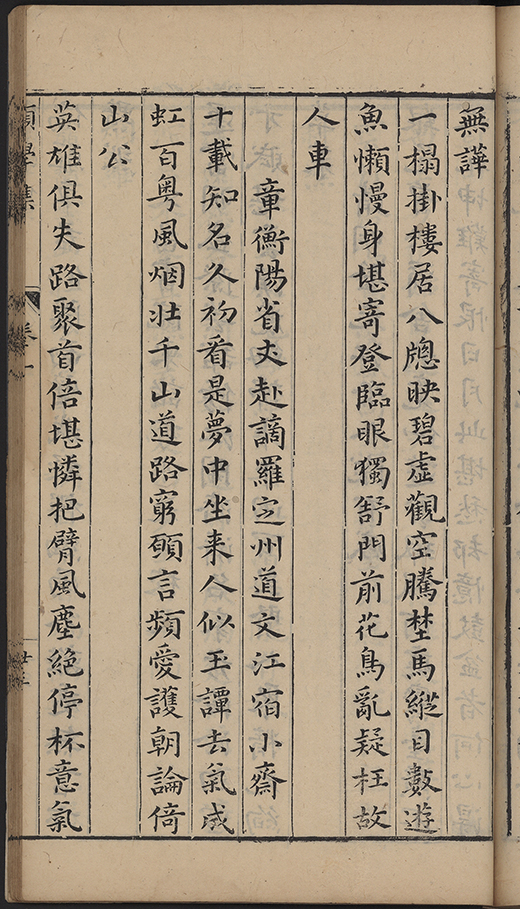 無譁
一榻掛樓居八牕映碧虛觀空騰埜馬縱目數遊
魚懶慢身堪寄登臨眼獨舒門前花鳥亂疑枉故
人車
章衡陽省丈赴謫羅定州道文江宿小齋
十載知名久初看是夢中坐来人似玉譚去氣成
虹百粤風烟壯千山道路窮頋言頻愛護朝論倚
山公
英雄俱失路聚首倍堪憐把臂風塵絕停杯意氣
集 卷一 廿三